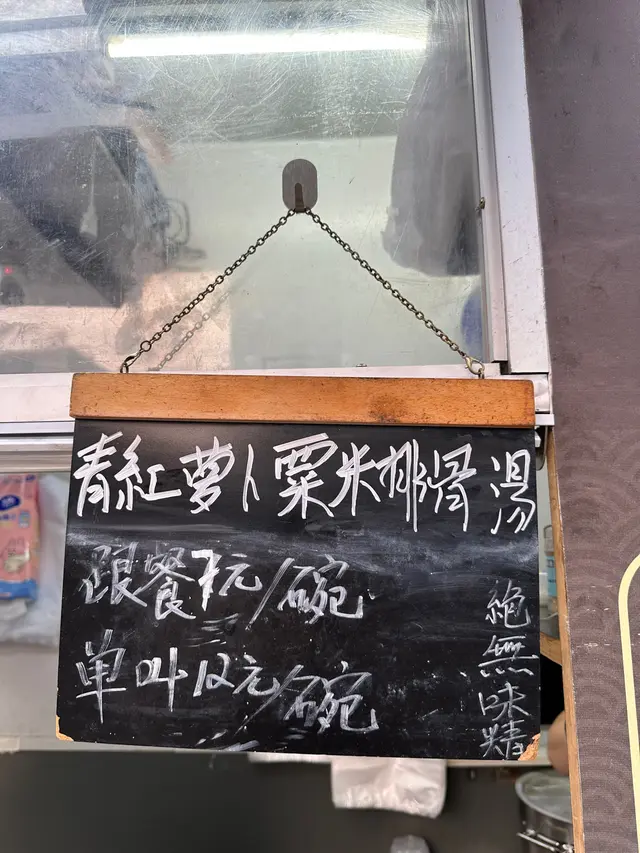 青紅萝卜粟米排骨湯
跟餐7元/碗
单叫12元/碗
絶無味精